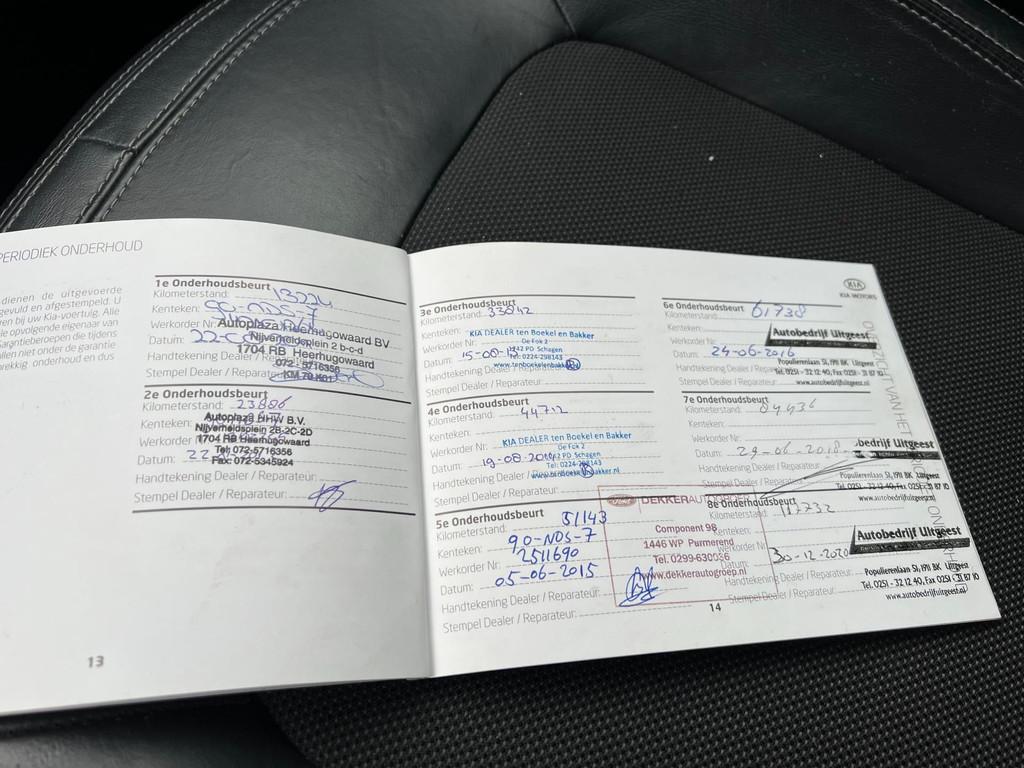 PERIODIEK ONDERHOUD
dienen de uitgevoerde
gevuld en afgestempeld. U
ren bij uw Kia-voertuig. Alle
le opvolgende eigenaar van
garantieberoepen die tijdens
llen niet onder de garantie
rekkig onderhoud en dus
1e Onderhoudsbeurt
Kilometerstand: 13224
Kenteken: 90-NDS-7
Werkorder Nr:
Autoplaza Heerhugowaard BV
Nijverheidsplein 2 b-c-d
Datum: 22-
1704 RB Heerhugowaard
Handtekening Dealer / Reparateur:
072 - 5716356
Stempel Dealer / Reparateur:
2e Onderhoudsbeurt
Kilometerstand: 23886
Autoplaza HHW B.V.
Kenteken:
Nijverheidsplein 2B-2C-2D
Werkorder
1704 RB Heerhugowaard
Tel: 072-5716356
Datum: 22
Fax: 072-5345924
Handtekening Dealer / Reparateur:
Stempel Dealer / Reparateur:
13
3e Onderhoudsbeurt
Kilometerstand: 33842
Kenteken:
KIA DEALER ten Boekel en Bakker
De Fok 2
Werkorder Nr:
1742 PD Schagen
Datum: 15-08-
Tel: 0224-298143
Handtekening Dealer
Stempel Dealer / Reparateur:
4e Onderhoudsbeurt
Kilometerstand: 44712
Kenteken:
KIA DEALER ten Boekel en Bakker
De Fok 2
Werkorder Nr:
1742 PD Schagen
Datum: 19-08-2014
Tel: 0224-298143
Handtekening Dealer
Stempel Dealer / Reparateur:
5e Onderhoudsbeurt
Kilometerstand: 51143
Kenteken: 90-NDS-7
Werkorder Nr: 2511690
Datum: 05-06-2015
Handtekening Dealer / Reparateur:
Stempel Dealer / Reparateur:
DEKKERAUTOGROEP
Component 98
1446 WP Purmerend
Tel. 0299-630036
www.dekkerautogroep.nl
14
KIA
KIA MOTORS
6e Onderhoudsbeurt
Kilometerstand: 61738
Kenteken:
Autobedrijf Uitgeest
Werkorder Nr:
Datum: 24-06-2016
Populierenlaan 51, 1911 BK Uitgeest
Handtekening Dealer / Reparateur:
Tel. 0251 - 32 12 40, Fax 0251 - 31 87 10
Stempel Dealer / Reparateur:
www.autobedrijfuitgeest.nl
7e Onderhoudsbeurt
Kilometerstand:
Kenteken:
Werkorder Nr:
bedrijf Uitgeest
Datum: 29-06-2018
Handtekening Dealer / Reparateur:
Populierenlaan 51, 1911 BK Uitgeest
Stempel Dealer / Reparateur:
Tel. 0251 - 32 12 40, Fax 0251 - 31 87 10
www.autobedrijfuitgeest.nl
8e Onderhoudsbeurt
Kilometerstand: 117732
Kenteken:
Autobedrijf Uitgeest
Werkorder Nr:
Datum: 30-12-2020
Populierenlaan 51, 1911 BK Uitgeest
Handtekening Dealer / Reparateur:
Tel. 0251 - 32 12 40, Fax 0251 - 31 87 10
Stempel Dealer / Reparateur:
www.autobedrijfuitgeest.nl